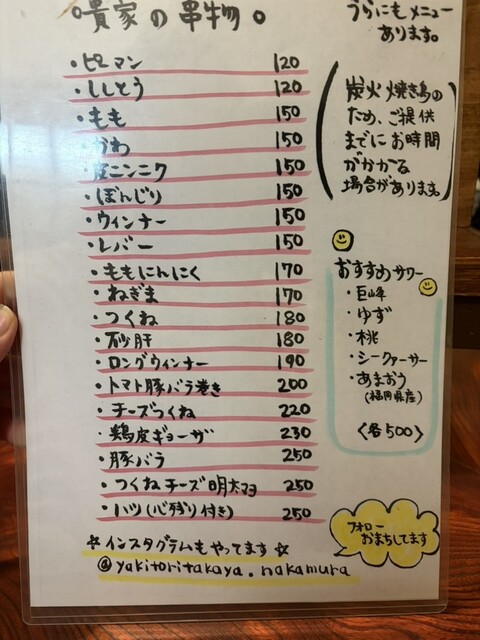 ○貴家の串物。
うらにもメニュー
あります。
・ピーマン 120
・ししとう 120
・もも 150
・かわ 150
・皮ニンニク 150
・ぼんじり 150
・ウィンナー 150
・レバー 150
・ももにんにく 170
・ねぎま 170
・つくね 180
・砂肝 180
・ロングウィンナー 190
・トマト豚バラ巻き 200
・チーズつくね 220
・鶏皮ギョーザ 230
・豚バラ 250
・つくねチーズ明太マヨ 250
・ハツ(心残り付き) 250
☆インスタグラムもやってます☆
@yakitoritakaya.nakamura
(炭火焼き鳥の
ため、ご提供
までにお時間
がかかる
場合があります。)
おすすめサワー
・巨峰
・ゆず
・桃
・シークァーサー
・あまおう
(福岡県産)
〈各500〉
フォロー
おまちしてます